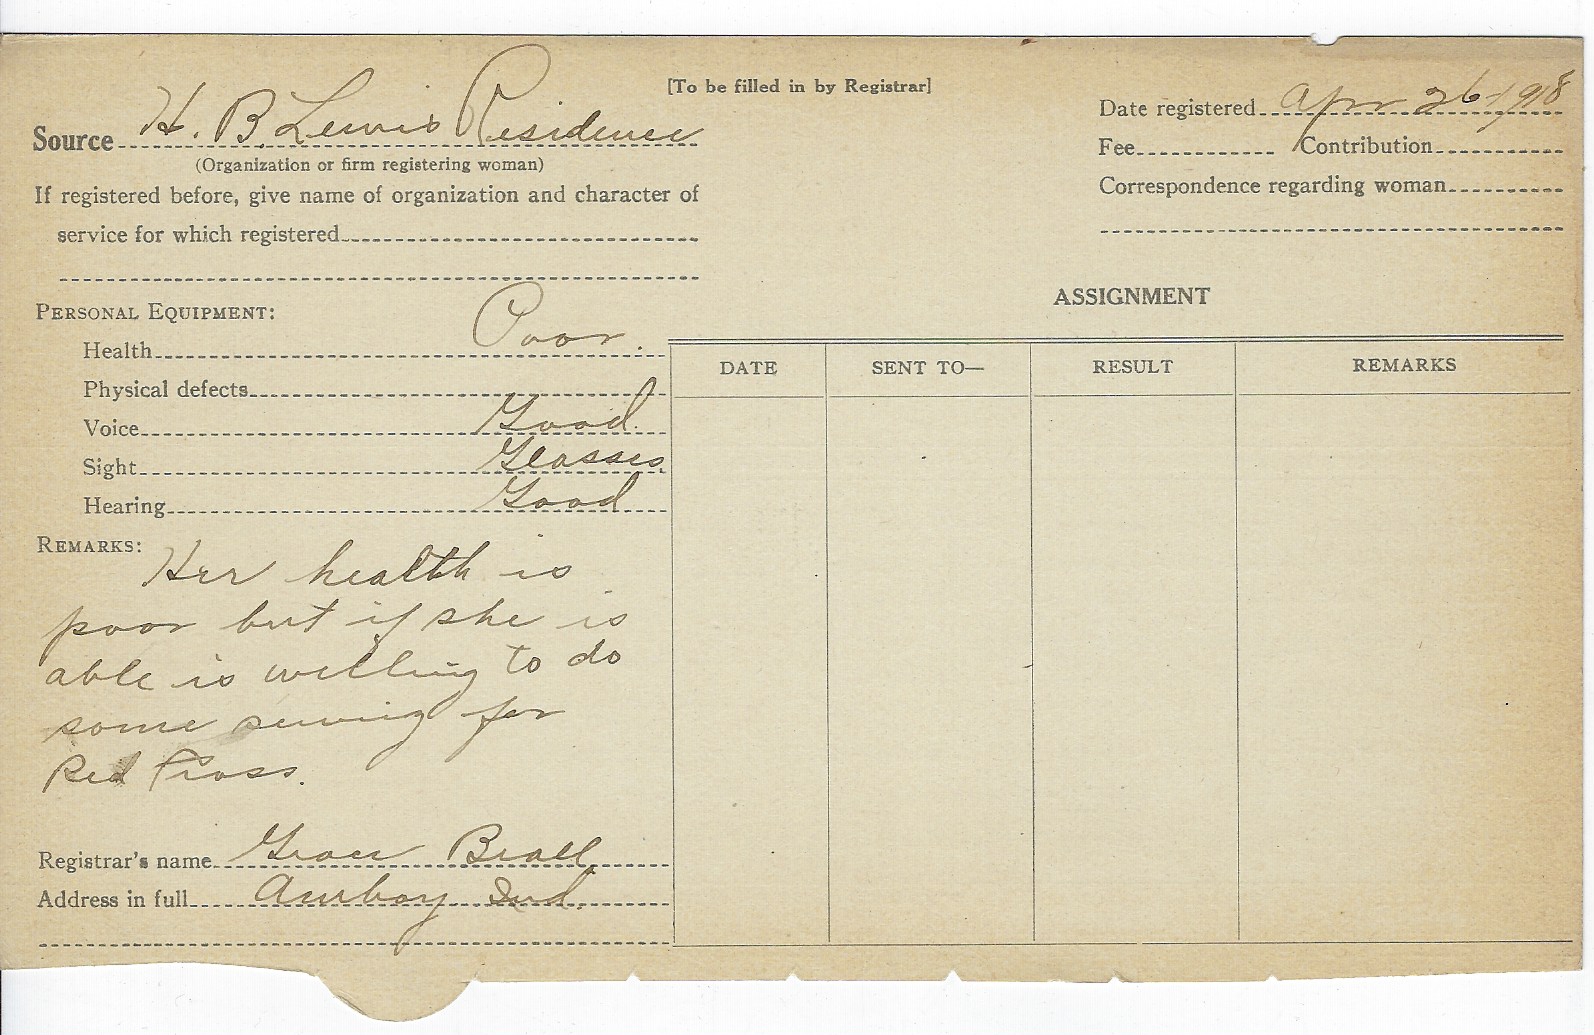 [To be filled in by Registrar]
Source H. B. Lewis Residence
(Organization or firm registering woman)
If registered before, give name of organization and character of
service for which registered
Date registered Apr 26-1918
Fee Contribution
Correspondence regarding woman
PERSONAL EQUIPMENT:
Health Poor.
Physical defects
Voice Good.
Sight Glasses
Hearing Good
REMARKS:
Her health is
poor but if she is
able is willing to do
some sewing for
Red Cross.
Registrar's name Grace Beall
Address in full Amboy Ind.
ASSIGNMENT
DATE SENT TO— RESULT REMARKS